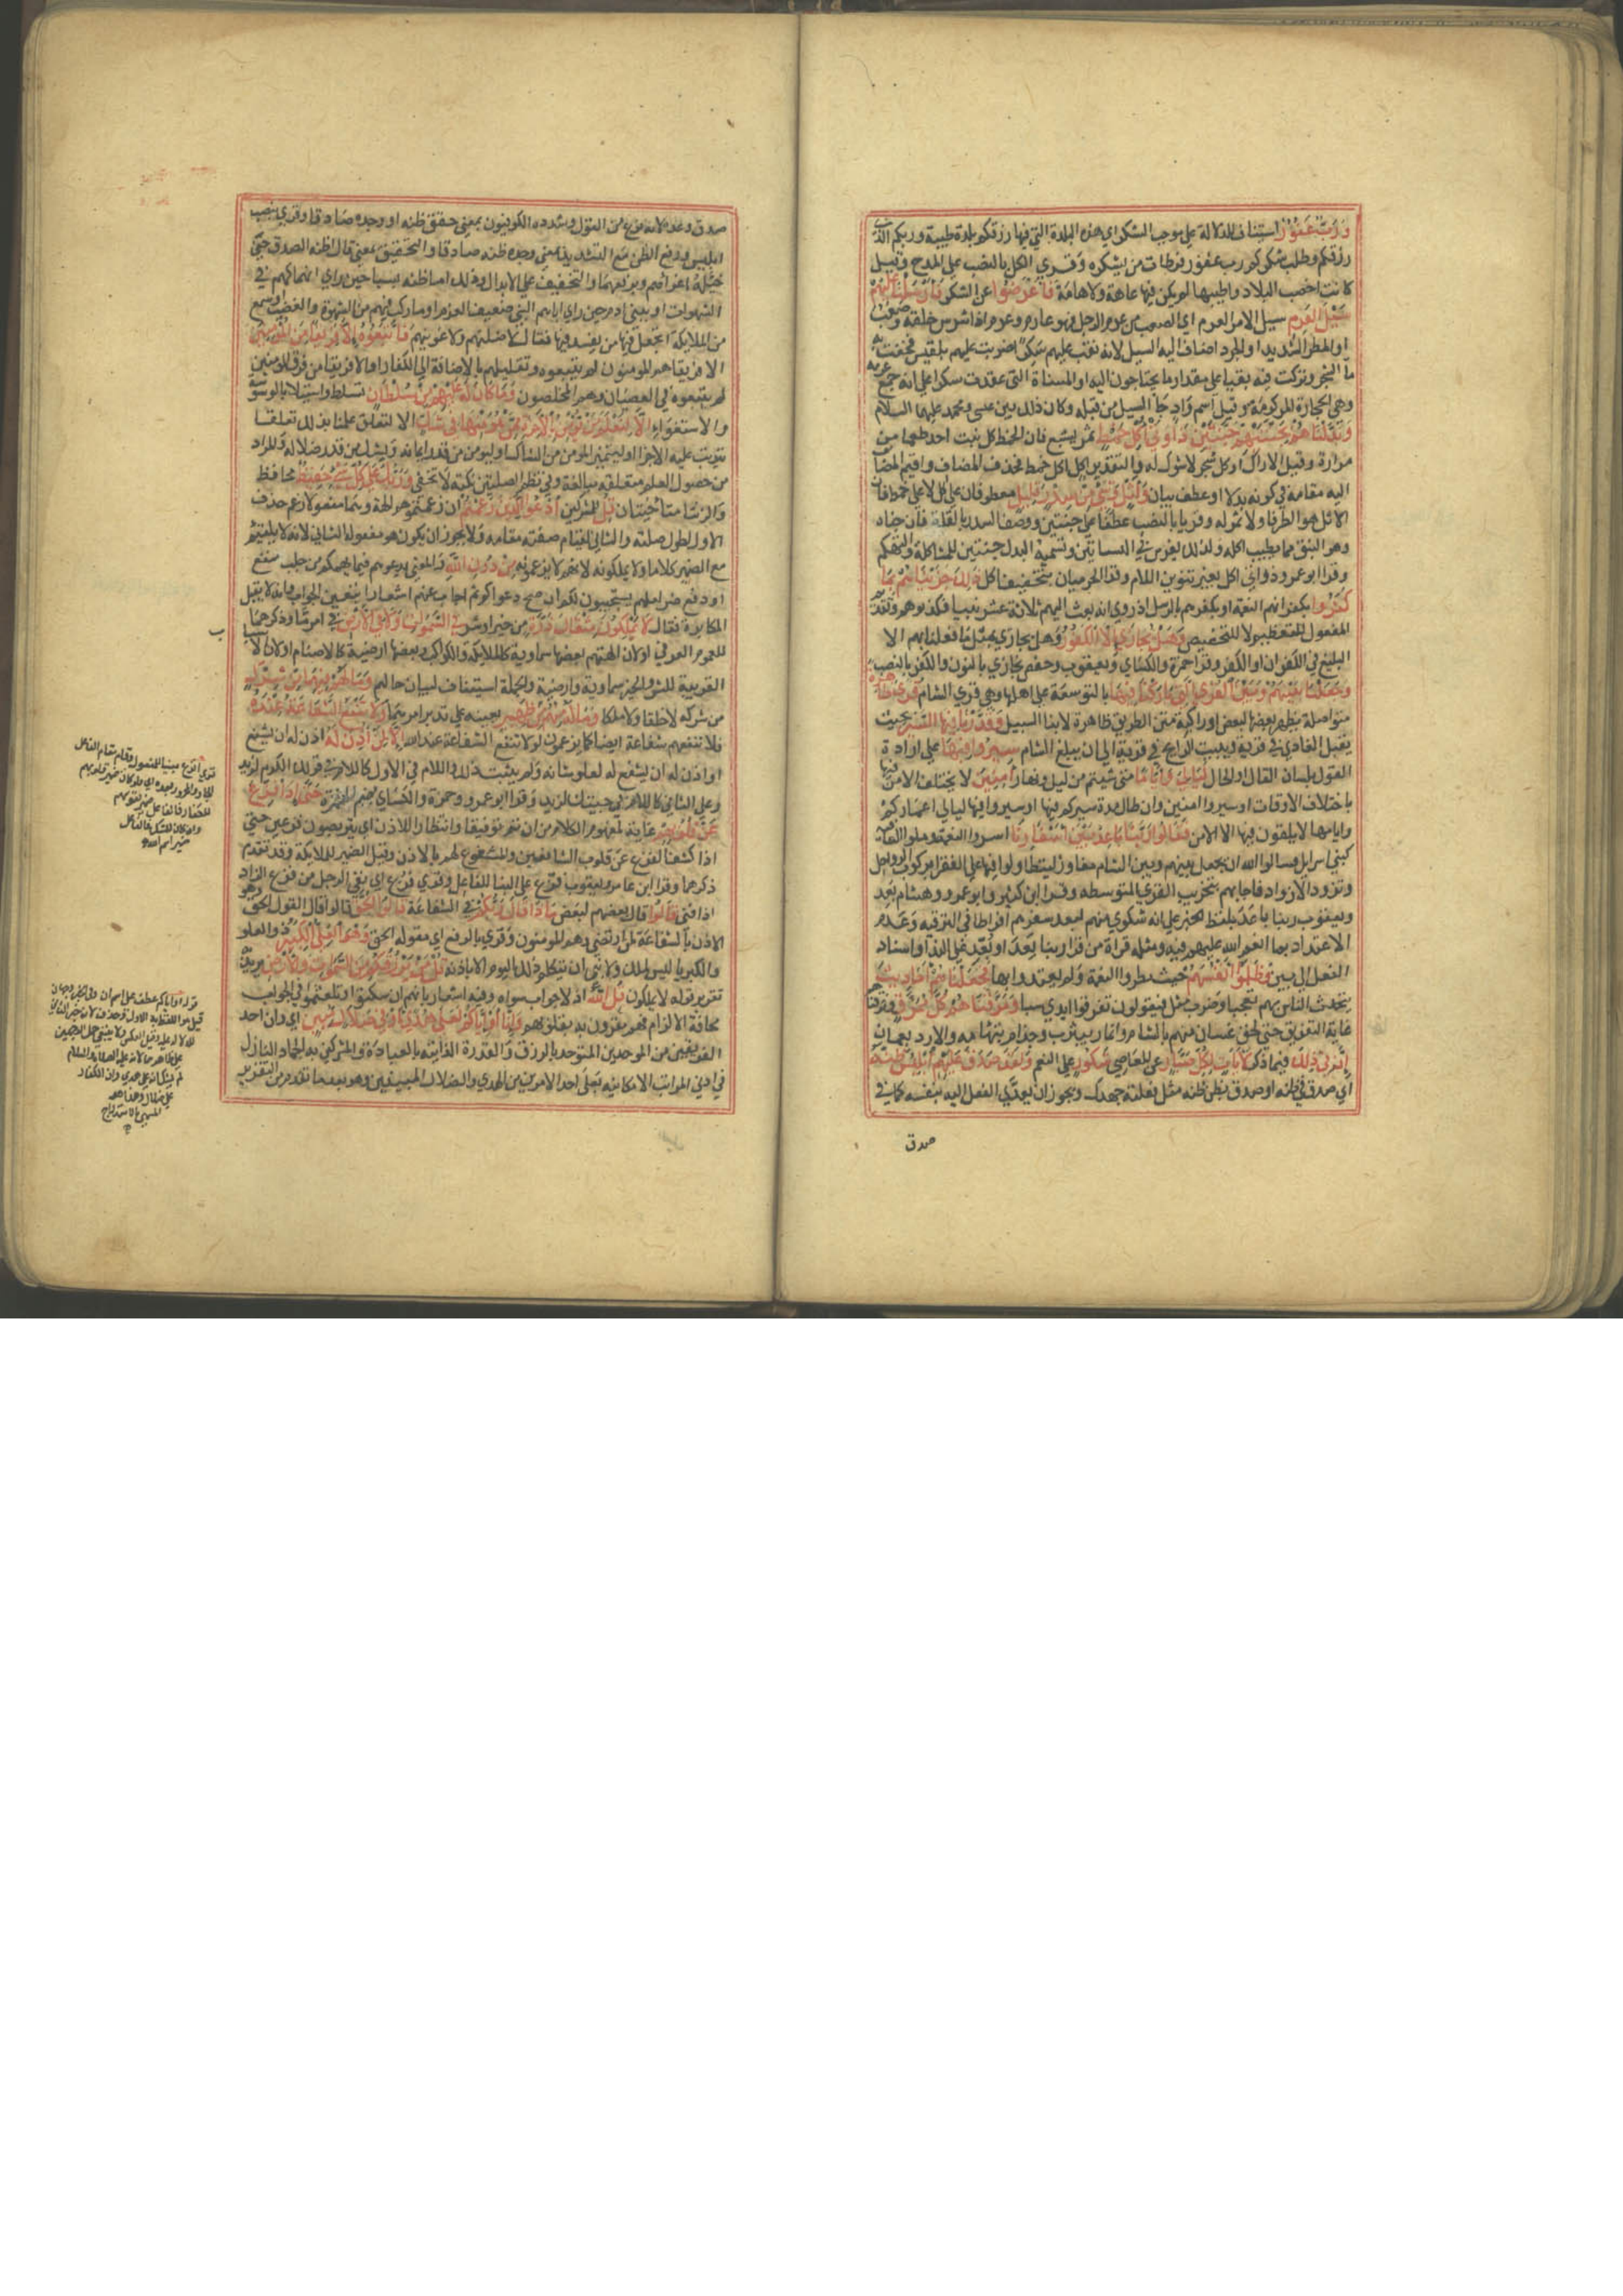 وَرَبٌّ غَفُوْرٌ استيناف للدلالة على موجب الشكر اي هذه البلدة التي فيها رزقكم بلدة طيبة وربكم الذي
رزقكم وطلب شكركم رب غفور فرطات من يشكره وقري الكل بالنصب على المدح وقيل
كانت اخصب البلاد واطيبها لم يكن فيها عاهة ولا هامة فَاَعْرَضُوْا عن الشكر فَاَرْسَلْنَا عَلَيْهِمْ
سَيْلَ العَرِمِ سيل الامر العرم اي الصعب من عرم الرجل فهو عارم وعرم اذا شرس خلقه وصعب
او المطر الشديد او الجرذ اضاف اليه السيل لانه نقب عليهم سكرا ضربت عليهم بلقيس فحقنت به
ما الشجر وتركت فيه نقبا على مقدار ما يحتاجون اليه او المسناة التي عقدت سكرا على انه جمع عرمة
وهي الحجارة المركومة وقيل اسم واد جا السيل من قبله وكان ذلك بين عيسى ومحمد عليهما السلام
وَبَدَّلْنَاهُمْ بِجَنَّتَيْهِمْ جَنَّتَيْنِ ذَوَاتَيْ اُكُلٍ خَمْطٍ ثمر بشع فان الخمط كل نبت اخذ طعما من
مرارة وقيل الاراك او كل شجر لا شوك له والتقدير اكل اكل خمط فحذف المضاف واقيم المضاف
اليه مقامه في كونه بدلا او عطف بيان وَاَثْلٍ وَشَيْءٍ مِنْ سِدْرٍ قَلِيْلٍ معطوفان على اكل لا على خمط فان
الاثل هو الطرفا ولا ثمر له وقريا بالنصب عطفا على جنتين ووصف السدر بالقلة فان جناه
وهو النبق مما يطيب اكله ولذلك يغرس في البساتين وتسمية البدل جنتين للمشاكلة والتهكم
وقرا ابو عمرو ذواتي اكل بغير تنوين اللام وقرا الحرميان بتخفيف اكل ذٰلِكَ جَزَيْنَاهُمْ بِمَا
كَفَرُوْا بكفرانهم النعمة او بكفرهم بالرسل اذ روي انه بعث اليهم ثلاثة عشر نبيا فكذبوهم وتقديم
المفعول للتعظيم لا للتخصيص وَهَلْ يُجَازٰى اِلَّا الْكَفُوْرُ وهل يجازي بمثل ما فعلنا بهم الا
البليغ في الكفران او الكفر وقرا حمزة والكساي ويعقوب وحفص نجازي بالنون والكفور بالنصب
وَجَعَلْنَا بَيْنَهُمْ وَبَيْنَ الْقُرَى الَّتِيْ بَارَكْنَا فِيْهَا بالتوسعة على اهلها وهي قري الشام قُرًى ظَاهِرَةً
متواصلة يظهر بعضها لبعض او راكبة متن الطريق ظاهرة لابنا السبيل وَقَدَّرْنَا فِيْهَا السَّيْرَ بحيث
يقيل الغادي في قرية ويبيت الرايح في قرية الى ان يبلغ الشام سِيْرُوْا فِيْهَا على ارادة
القول بلسان المقال او الحال لَيَالِيَ وَاَيَّامًا متى شيتم من ليل ونهار اٰمِنِيْنَ لا يختلف الامن فيها
باختلاف الاوقات او سيروا امنين وان طال مدة سيركم فيها او سيروا فيها ليالي اعماركم
وايامها لا تلقون فيها الا الامن فَقَالُوْا رَبَّنَا بَاعِدْ بَيْنَ اَسْفَارِنَا اشروا النعمة وملوا العافية
كبني اسرايل فسالوا الله ان يجعل بينهم وبين الشام مفاوز ليتطاولوا فيها على الفقرا بركوب الرواحل
وتزود الازواد فاجابهم بتخريب القري المتوسطة وقرا ابن كثير وابو عمرو وهشام بَعِّد
ويعقوب ربنا باعَدَ بلفظ الخبر على انه شكوي منهم لبعد سفرهم افراطا في الترفيه وعدم
الاعتداد بما انعم الله عليهم فيه ومثله قراة من قرا ربنا بَعَّدَ او بَعُدَ على الندا واسناد
الفعل الى بين وَظَلَمُوْا اَنْفُسَهُمْ حيث بطروا النعمة ولم يعتدوا بها فَجَعَلْنَاهُمْ اَحَادِيْثَ
يتحدث الناس بهم تعجبا وضرب مثل فيقولون تفرقوا ايدي سبا وَمَزَّقْنَاهُمْ كُلَّ مُمَزَّقٍ وفرقناهم
غاية التفريق حتى لحق غسان منهم بالشام وانمار بيثرب وجذام بتهامة والازد بعمان
اِنَّ فِيْ ذٰلِكَ فيما ذكر لَاٰيَاتٍ لِكُلِّ صَبَّارٍ عن المعاصي شَكُوْرٍ على النعم وَلَقَدْ صَدَقَ عَلَيْهِمْ اِبْلِيْسُ ظَنَّهُ
اي صدق في ظنه او صدق بظن ظنه مثل فعلته جهدك ويجوز ان يعدي الفعل اليه بنفسه كما في
صدق
صدق وعده لانه نوع من القول وشدده الكوفيون بمعنى حقق ظنه او وجده صادقا وقري بنصب
ابليس ورفع الظن مع التشديد بمعنى وجده ظنه صادقا والتخفيف بمعنى قال له ظنه الصدق حين
خيله اغواهم وبرفعهما والتخفيف على الابدال وذلك اما ظنه بسبا حين راي انهماكهم في
الشهوات او ببني ادم حين راي اباهم النبي ضعيف العزم او ما ركب فيهم من الشهوة والغضب او سمع
من الملايكة اتجعل فيها من يفسد فيها فقال لاضلنهم ولاغوينهم فَاتَّبَعُوْهُ اِلَّا فَرِيْقًا مِنَ الْمُؤْمِنِيْنَ
الا فريقا هم المومنون لم يتبعوه وتقليلهم بالاضافة الى الكفار او الا فريقا من فرق المومنين
لم يتبعوه في العصيان وهم المخلصون وَمَا كَانَ لَهُ عَلَيْهِمْ مِنْ سُلْطَانٍ تسلط واستيلا بالوسوسة
والاستغواء اِلَّا لِنَعْلَمَ مَنْ يُؤْمِنُ بِالْاٰخِرَةِ مِمَّنْ هُوَ مِنْهَا فِيْ شَكٍّ الا لتعلق علمنا بذلك تعلقا
يترتب عليه الاجزا او ليتميز المومن من الشاك او ليومن من قدر ايمانه ويشك من قدر ضلاله والمراد
من حصول العلم حصول متعلقه مبالغة وفي نظم الصلتين نكتة لا تخفى وَرَبُّكَ عَلٰى كُلِّ شَيْءٍ حَفِيْظٌ محافظ
والزنتا متآخيتان قُلْ للمشركين اُدْعُوا الَّذِيْنَ زَعَمْتُمْ اي زعمتموهم الهة وهما مفعولا زعم حذف
الاول لطول صلته والثاني لقيام صفته مقامه ولا يجوز ان يكون هو مفعوله الثاني لانه لا يلتيم
مع الضمير كلاما ولا يملكونه لانهم لا يزعمونه مِنْ دُوْنِ اللّٰهِ والمعنى ادعوهم فيما يهمكم من جلب نفع
او دفع ضر لعلهم يستجيبون لكم ان صح دعواكم ثم اجاب عنهم اشعارا بتعين الجواب وانه لا يقبل
المكابرة فقال لَا يَمْلِكُوْنَ مِثْقَالَ ذَرَّةٍ من خير او شر فِي السَّمٰوَاتِ وَلَا فِي الْاَرْضِ في امر ما وذكرهما
للعموم العرفي او لان الهتهم بعضها سماوية كالملايكة والكواكب وبعضها ارضية كالاصنام او لان الاسباب
القريبة للشر والخير سماوية وارضية والجملة استيناف لبيان حالهم وَمَا لَهُمْ فِيْهِمَا مِنْ شِرْكٍ
من شركة لا خلقا ولا ملكا وَمَا لَهُ مِنْهُمْ مِنْ ظَهِيْرٍ يعينه على تدبير امرهما وَلَا تَنْفَعُ الشَّفَاعَةُ عِنْدَهُ
فلا تنفعهم شفاعة ايضا كما يزعمون اذ لا تنفع الشفاعة عند الله اِلَّا لِمَنْ اَذِنَ لَهُ اذن له ان يشفع
او اذن له ان يشفع له لعلو شانه ولم يثبت ذلك واللام في الاول كاللام في قولك الكرم لزيد
وعلى الثاني كاللام في جيتك لزيد وقرا ابو عمرو وحمزة والكساي بضم الهمزة حَتّٰى اِذَا فُزِّعَ
عَنْ قُلُوْبِهِمْ غاية لمفهوم الكلام من ان ثم توقيفا وانتظارا للاذن اي يتربصون فزعين حتى
اذا كشف الفزع عن قلوب الشافعين والمشفوع لهم بالاذن وقيل الضمير للملايكة وقد تقدم
ذكرهم وقرا ابن عامر ويعقوب فزع على البنا للفاعل وقري فرغ اي نفي الوجل من فرغ الزاد
اذا فني قَالُوْا قال بعضهم لبعض مَاذَا قَالَ رَبُّكُمْ في الشفاعة قَالُوا الْحَقَّ قالوا قال القول الحق وهو
الاذن بالشفاعة لمن ارتضى وهم المومنون وقري بالرفع اي مقوله الحق وَهُوَ الْعَلِيُّ الْكَبِيْرُ ذو العلو
والكبريا ليس لملك ولا نبي ان يتكلم ذلك اليوم الا باذنه قُلْ مَنْ يَرْزُقُكُمْ مِنَ السَّمٰوَاتِ وَالْاَرْضِ يريد به
تقرير قوله لا يملكون قُلِ اللّٰهُ اذ لا جواب سواه وفيه اشعار بانهم ان سكتوا او تلعثموا في الجواب
مخافة الالزام فهم مقرون به بقلوبهم وَاِنَّا اَوْ اِيَّاكُمْ لَعَلٰى هُدًى اَوْ فِيْ ضَلَالٍ مُبِيْنٍ اي وان احد
الفريقين من الموحدين المتوحد بالرزق والقدرة الذاتية بالعبادة والمشركين به الجماد النازل
في ادنى المراتب الامكانية لعلى احد الامرين من الهدي والضلال المبينين وهو بعد ما تقدم من التقرير